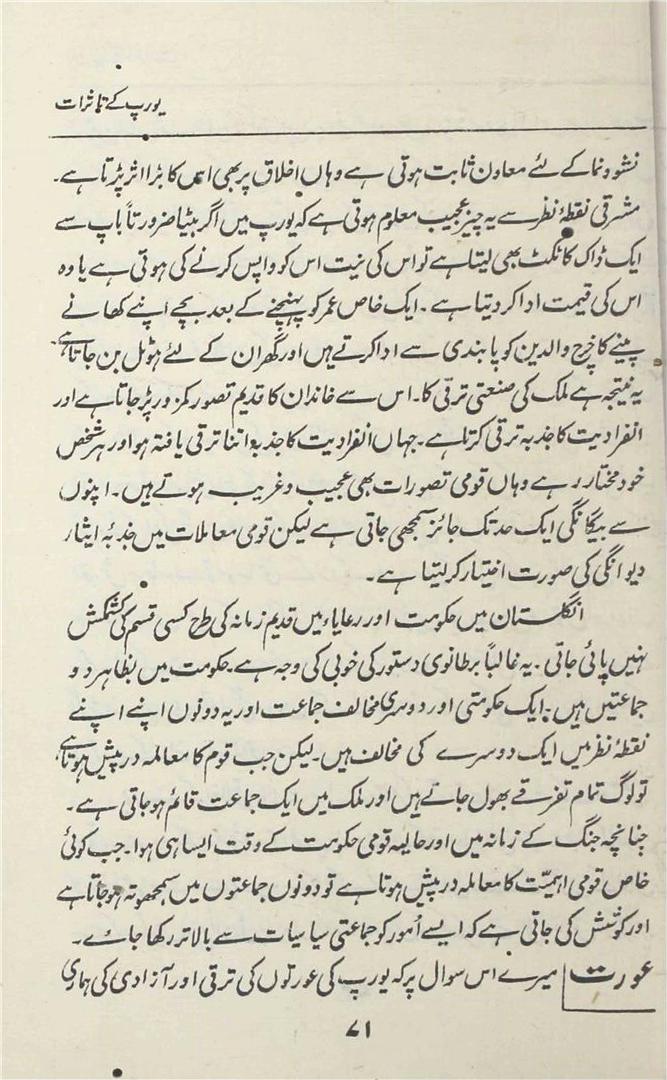 یورپ کے تاثرات
نشوونما کے لئے معاون ثابت ہوتی ہے وہاں اخلاق پر بھی اس کا بڑا اثر پڑتا ہے۔
مشرقی نقطۂ نظر سے یہ چیز عجیب معلوم ہوتی ہے کہ یورپ میں اگر بیٹا ضرورتاً باپ سے
ایک ڈاک کا ٹکٹ بھی لیتا ہے تو اس کی نیت اس کو واپس کرنے کی ہوتی ہے یا وہ
اس کی قیمت ادا کر دیتا ہے۔ ایک خاص عمر کو پہنچنے کے بعد بچے اپنے کھانے
پینے کا خرچ والدین کو پابندی سے ادا کرتے ہیں اور گھر ان کے لئے ہوٹل بن جاتا ہے۔
یہ نتیجہ ہے ملک کی صنعتی ترقی کا۔ اس سے خاندان کا قدیم تصور کمزور پڑ جاتا ہے اور
انفرادیت کا جذبہ ترقی کرتا ہے۔ جہاں انفرادیت کا جذبہ اتنا ترقی یافتہ ہو اور ہر شخص
خود مختار رہے وہاں قومی تصورات بھی عجیب و غریب ہوتے ہیں۔ اپنوں
سے بیگانگی ایک حد تک جائز سمجھی جاتی ہے لیکن قومی معاملات میں جذبۂ ایثار
دیوانگی کی صورت اختیار کر لیتا ہے۔
انگلستان میں حکومت اور رعایاء میں قدیم زمانہ کی طرح کسی قسم کی کشمکش
نہیں پائی جاتی۔ یہ غالباً برطانوی دستور کی خوبی کی وجہ ہے۔ حکومت میں بظاہر دو
جماعتیں ہیں۔ ایک حکومتی اور دوسری مخالف جماعت اور یہ دونوں اپنے اپنے
نقطۂ نظر میں ایک دوسرے کی مخالف ہیں۔ لیکن جب قوم کا معاملہ درپیش ہوتا ہے
تو لوگ تمام تفرقے بھول جاتے ہیں اور ملک میں ایک جماعت قائم ہو جاتی ہے۔
چنانچہ جنگ کے زمانہ میں اور حالیہ قومی حکومت کے وقت ایسا ہی ہوا۔ جب کوئی
خاص قومی اہمیّت کا معاملہ درپیش ہوتا ہے تو دونوں جماعتوں میں سمجھوتہ ہو جاتا ہے
اور کوشش کی جاتی ہے کہ ایسے اُمور کو جماعتی سیاسیات سے بالاتر رکھا جائے۔
عورت میرے اس سوال پر کہ یورپ کی عورتوں کی ترقی اور آزادی کی ہماری
۷۱